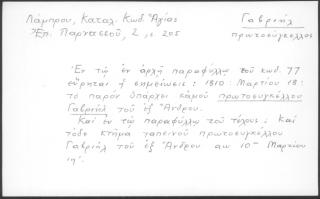 Λάμπρου, Καταλ. Κωδ. Ἁγίας
Ἐπ. Παρνασσοῦ, 2, σ. 205
Γαβριήλ
πρωτοσυγκελλος
Ἐν τῷ ἐν ἀρχῇ παραφύλλῳ τοῦ κωδ. 77
εὕρηται ἡ σημείωσις: 1810: Μαρτίου 18:
τὸ παρὸν ὑπάρχει κἀμοῦ πρωτοσυγκέλλου
Γαβριὴλ τοῦ ἐξ Ἄνδρου.
Καὶ ἐν τῷ παραφύλλῳ τοῦ τέλους: Καὶ
τόδε κτῆμα ταπεινοῦ πρωτοσυγκέλλου
Γαβριὴλ τοῦ ἐξ Ἄνδρου αωι 10 Μαρτίου
ιη'.